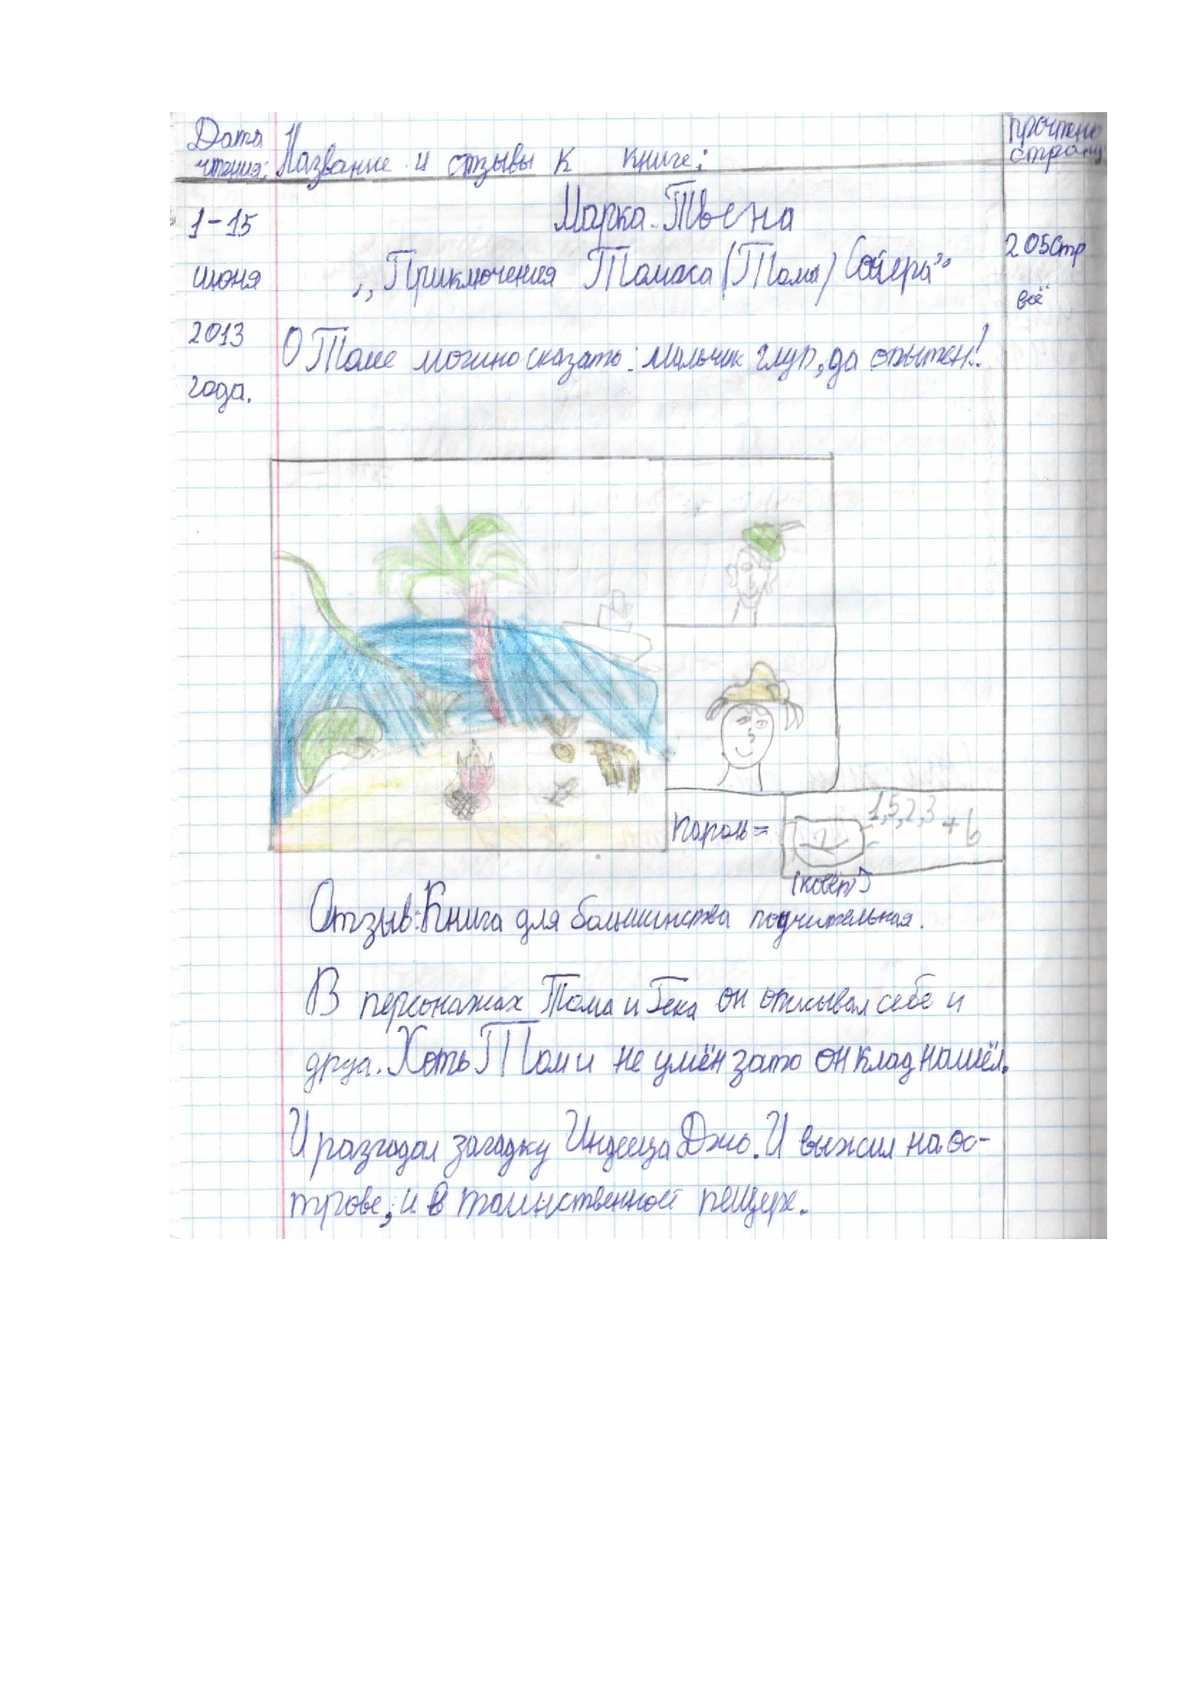 Дата
чтения:
Название и отзывы к книге:
Прочтено
страниц
1-15
июня
2013
года.
Марка Твена
„Приключения Томаса (Тома) Сойера”
205 стр
всё
О Томе можно сказать: мальчик глуп, да опытен!
Пароль =
1,5,2,3 + 6
Отзыв: Книга для большинства поучительная.
В персонажах Тома и Гека он описывал себе и
друга. Хоть Том и не умён зато он клад нашёл.
И разгадал загадку Индейца Джо. И выжил на ос-
трове, и в таинственной пещере.